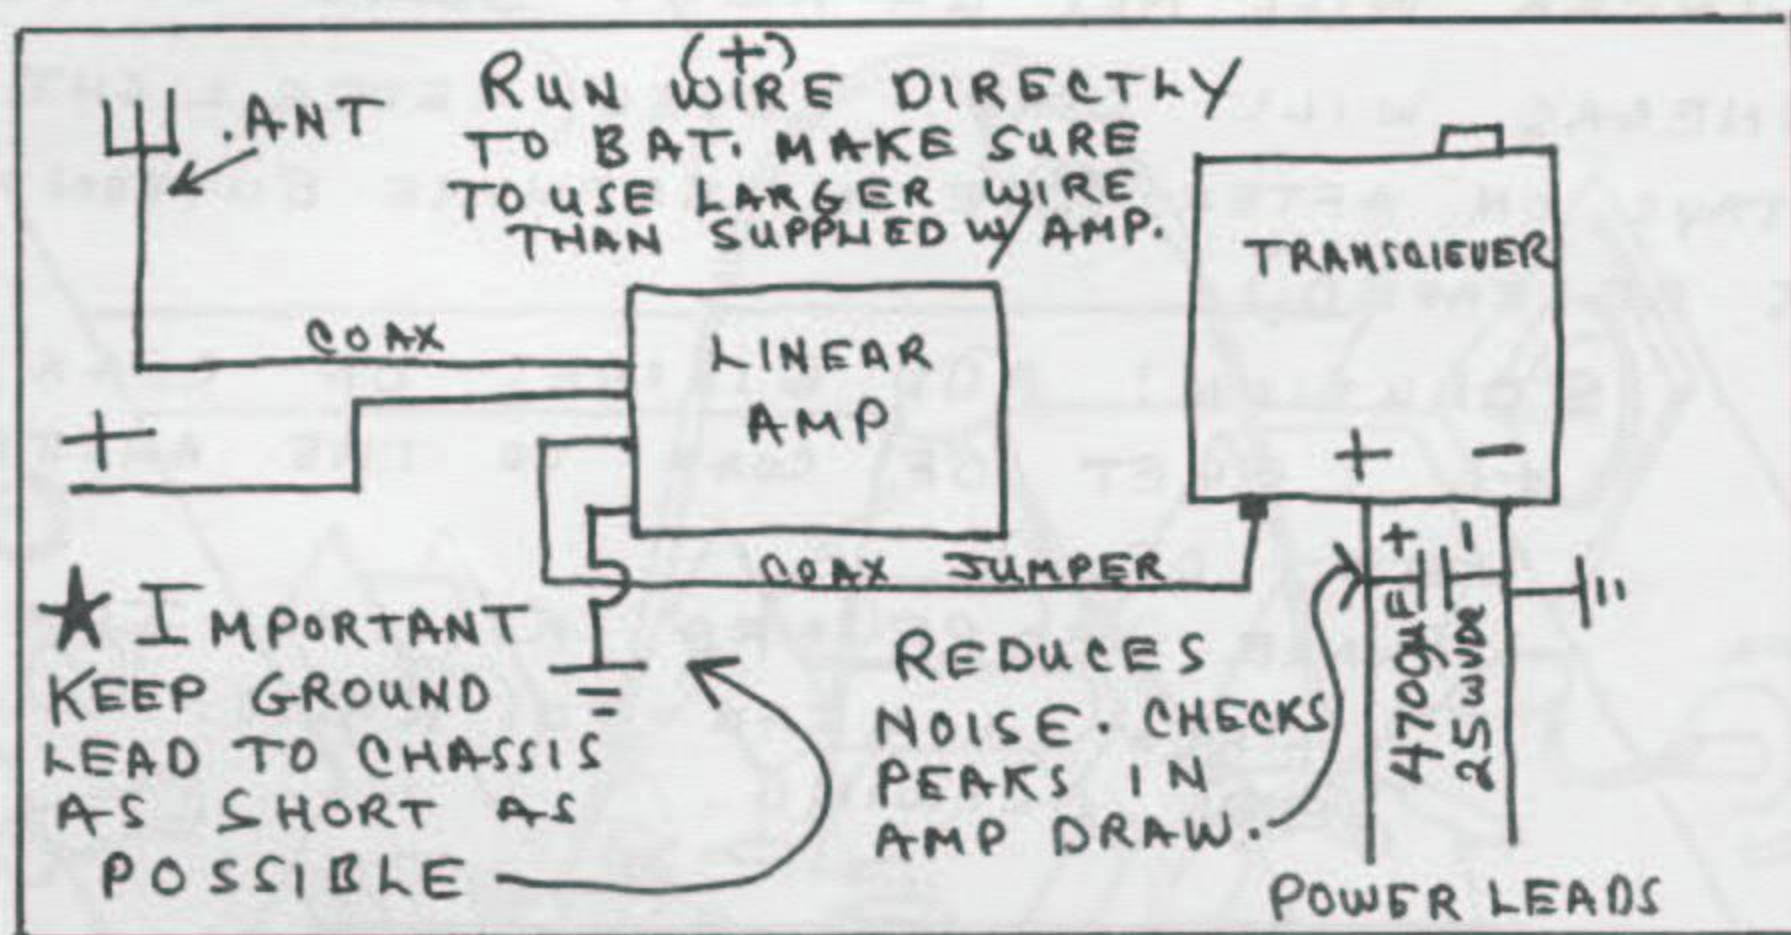 .ANT
(+)
RUN WIRE DIRECTLY
TO BAT. MAKE SURE
TO USE LARGER WIRE
THAN SUPPLIED W/ AMP.
TRANSCIEVER
COAX
LINEAR
AMP
+
+ -
COAX JUMPER
+ -
4700µF
25WVDC
★ IMPORTANT
KEEP GROUND
LEAD TO CHASSIS
AS SHORT AS
POSSIBLE
REDUCES
NOISE. CHECKS
PEAKS IN
AMP DRAW.
POWER LEADS